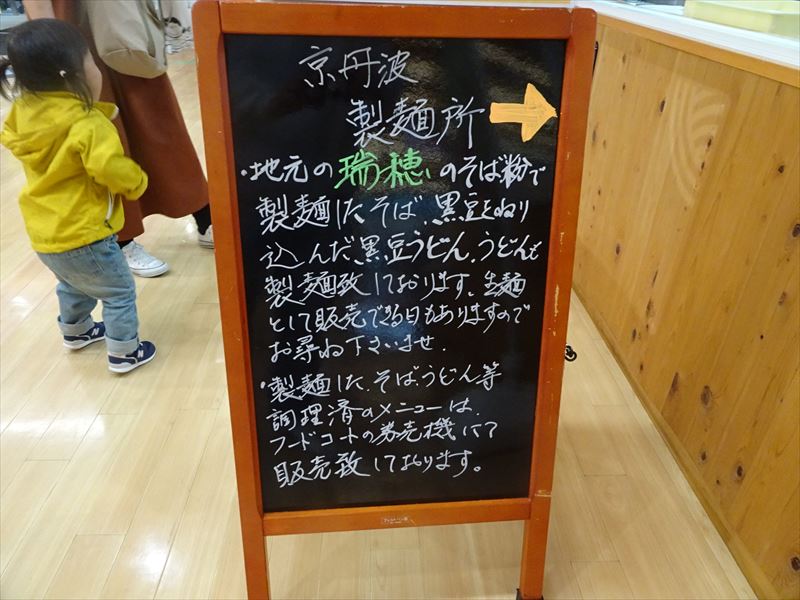 京丹波
製麺所
・地元の瑞穂のそば粉で
製麺したそば、黒豆をねり
込んだ、黒豆うどん、うどんも
製麺致しております。生麺
として販売できる日もありますので
お尋ね下さいませ。
・製麺した、そば、うどん等
調理済のメニューは、
フードコートの券売機にて
販売致しております。